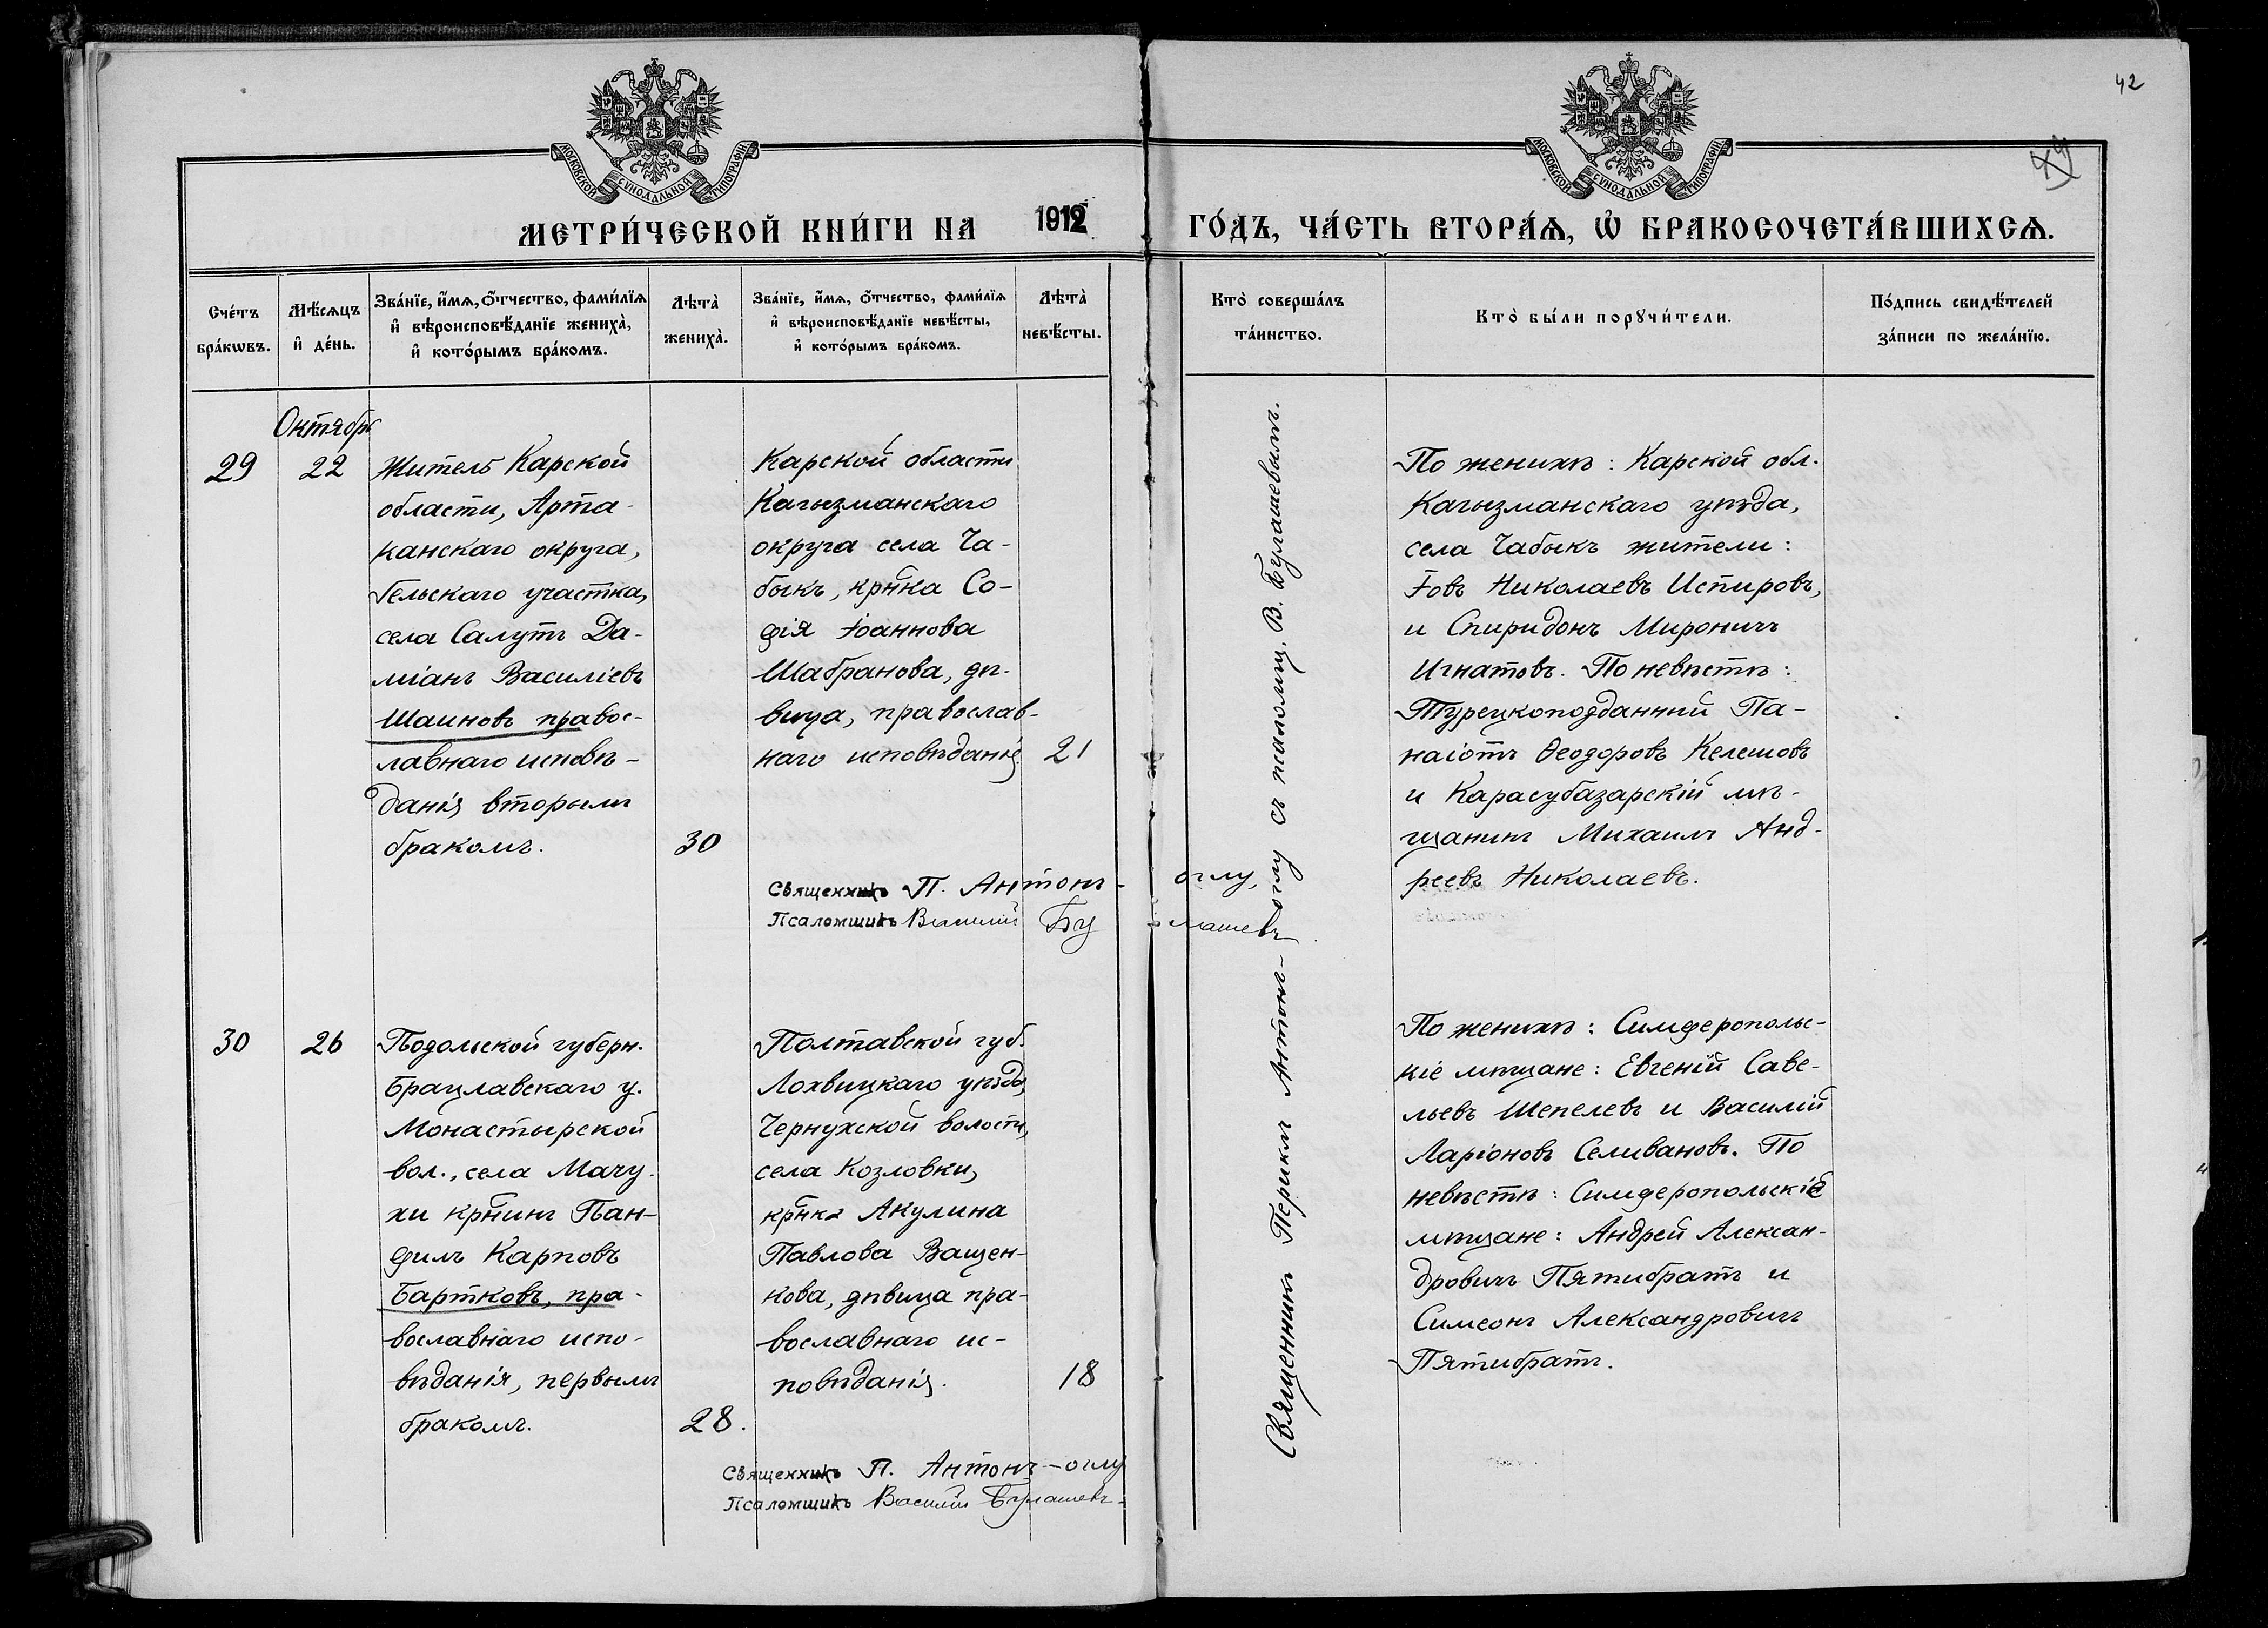 42
МОСКОВСКОЙ СѴНОДАЛЬНОЙ ТИПОГРАФІИ
МОСКОВСКОЙ СѴНОДАЛЬНОЙ ТИПОГРАФІИ
МЕТРИ́ЧЕСКОЙ КНИ́ГИ НА 1912 ГО́ДЪ, ЧА́СТЬ ВТОРА́Ѧ, Ѽ БРАКОСОЧЕТА́ВШИХСѦ.
Сче́тъ
бра́кѡвъ.
Мѣ́сѧцъ
и҆ де́нь.
Зва́нїе, и҆́мѧ, ѻ҆́тчество, фами́лїѧ
и҆ вѣроисповѣ́данїе жениха̀,
и҆ кото́рымъ бра́комъ.
Лѣта̀
жениха̀.
Зва́нїе, и҆́мѧ, ѻ҆́тчество, фами́лїѧ
и҆ вѣроисповѣ́данїе невѣ́сты,
и҆ кото́рымъ бра́комъ.
Лѣта̀
невѣ́сты.
Кто̀ соверша́лъ
та́инство.
Кто̀ бы́ли порꙋчи́тели.
По́дпись свидѣ́телей
за́писи по жела́нїю.
Октябрь
29
22
Житель Карской
области, Арта-
канскаго округа,
Гельскаго участка,
села Салутъ Да-
міанъ Василіевъ
Шаиновъ правос-
лавнаго исповѣ-
данія вторымъ
бракомъ.
30
Карской области
Кагызманскаго
округа села Ча-
быкъ, кр-нка Со-
фія Іоаннова
Шабранова, дѣ-
вица, православ-
наго исповѣданія
21
Священникъ П. Антонъ-оглу,
Псаломщикъ Василій Булашевъ
Священникъ Периклъ Антонъ-оглу съ псаломщ. В. Булашевымъ.
По женихѣ: Карской обл.
Кагызманскаго уѣзда,
села Чабыкъ жители:
Іовъ Николаевъ Испировъ,
и Спиридонъ Мироничъ
Игнатовъ. По невѣстѣ:
Турецкоподданный Па-
наіотъ Ѳеодоровъ Келешовъ
и Карасубазарскій мѣ-
щанинъ Михаилъ Анд-
реевъ Николаевъ.
30
26
Подольской губерн.
Брацлавскаго у.
Монастырской
вол., села Мачу-
хи кр-нинъ Пан-
филъ Карповъ
Бартковъ, пра-
вославнаго испо-
вѣданія, первымъ
бракомъ.
28.
Полтавской губ.
Лохвицкаго уѣзда,
Чернухской волости,
села Козловки,
кр-нка Акулина
Павлова Ващен-
кова, дѣвица пра-
вославнаго ис-
повѣданія.
18
Священникъ П. Антонъ-оглу
Псаломщикъ Василій Булашевъ
По женихѣ: Симферопольс-
кіе мѣщане: Евгеній Саве-
льевъ Шепелевъ и Василій
Ларіоновъ Селивановъ. По
невѣстѣ: Симферопольскіе
мѣщане: Андрей Алексан-
дровичъ Пятибратъ и
Симеонъ Александровичъ
Пятибратъ.